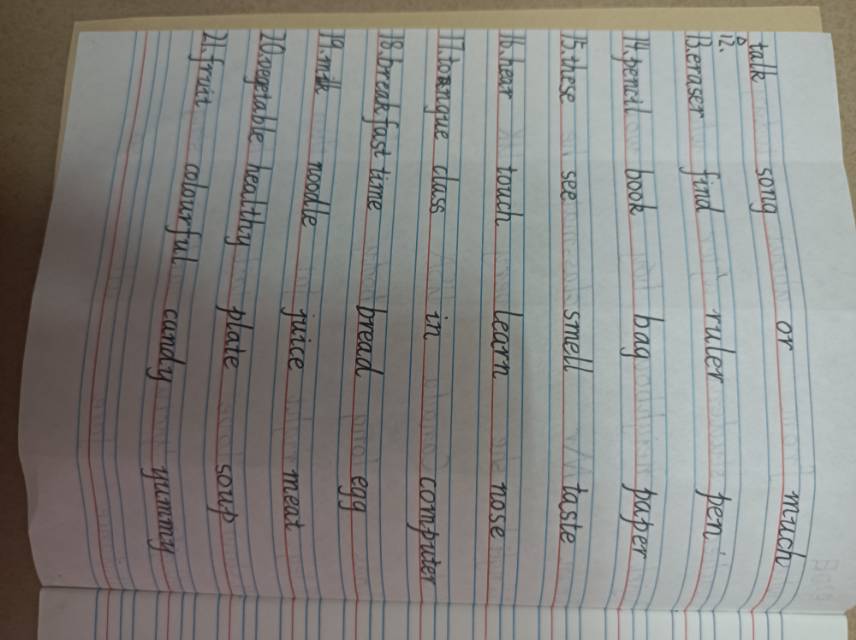 12. talk song or much
13. eraser find ruler pen
14. pencil book bag paper
15. these see smell taste
16. hear touch learn nose
17. tongue class in computer
18. breakfast time bread egg
19. milk noodle juice meat
20. vegetable healthy plate soup
21. fruit colourful candy yummy